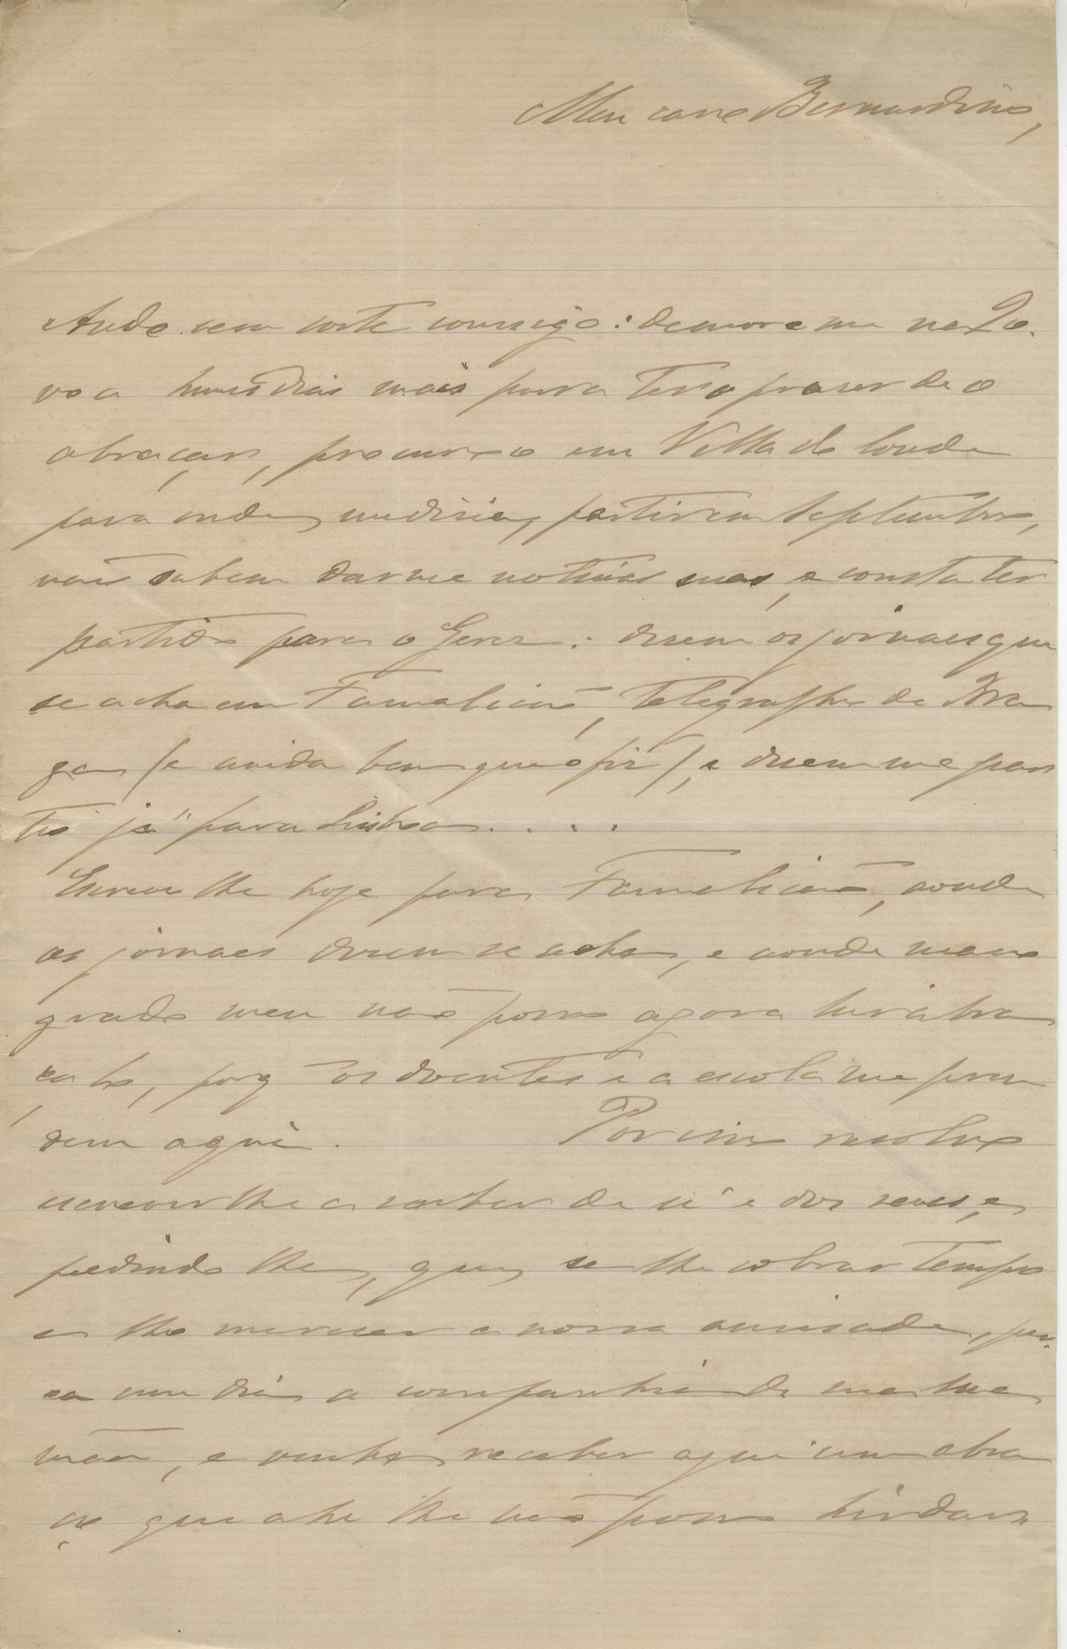 Meu caro Bernardino,
Ando sem sorte comsigo: demoro me na Po.
voa huns dias mais para ter o praser de o
abraçar, procuro o em Villa do Conde
para onde, me dizia, partir em Septembro,
não sabem darme noticias suas, e consta ter
partido para o Gerez: dizem os jornaes que
se acha em Famalicão, telegrapho de Bra
ga (e ainda bem que o fiz), e dizem me par
tio já para Lisboa....
Escrevi lhe hoje para Famalicão, aonde
os jornaes dizem se acha, e aonde mao
grado meu não posso agora hir abra
çalo, porq os doentes e a escola me pren
dem aqui. Por isso resolvo
escrever lhe a saber de si e dos seus, e
pedindo lhe, que, se lhe sobrar tempo
e lhe merecer a nossa amisade, pe.
ça um dia a companhia de sua
mãe, e venha receber aqui um abra
ço que ahi lhe não posso hir dar.